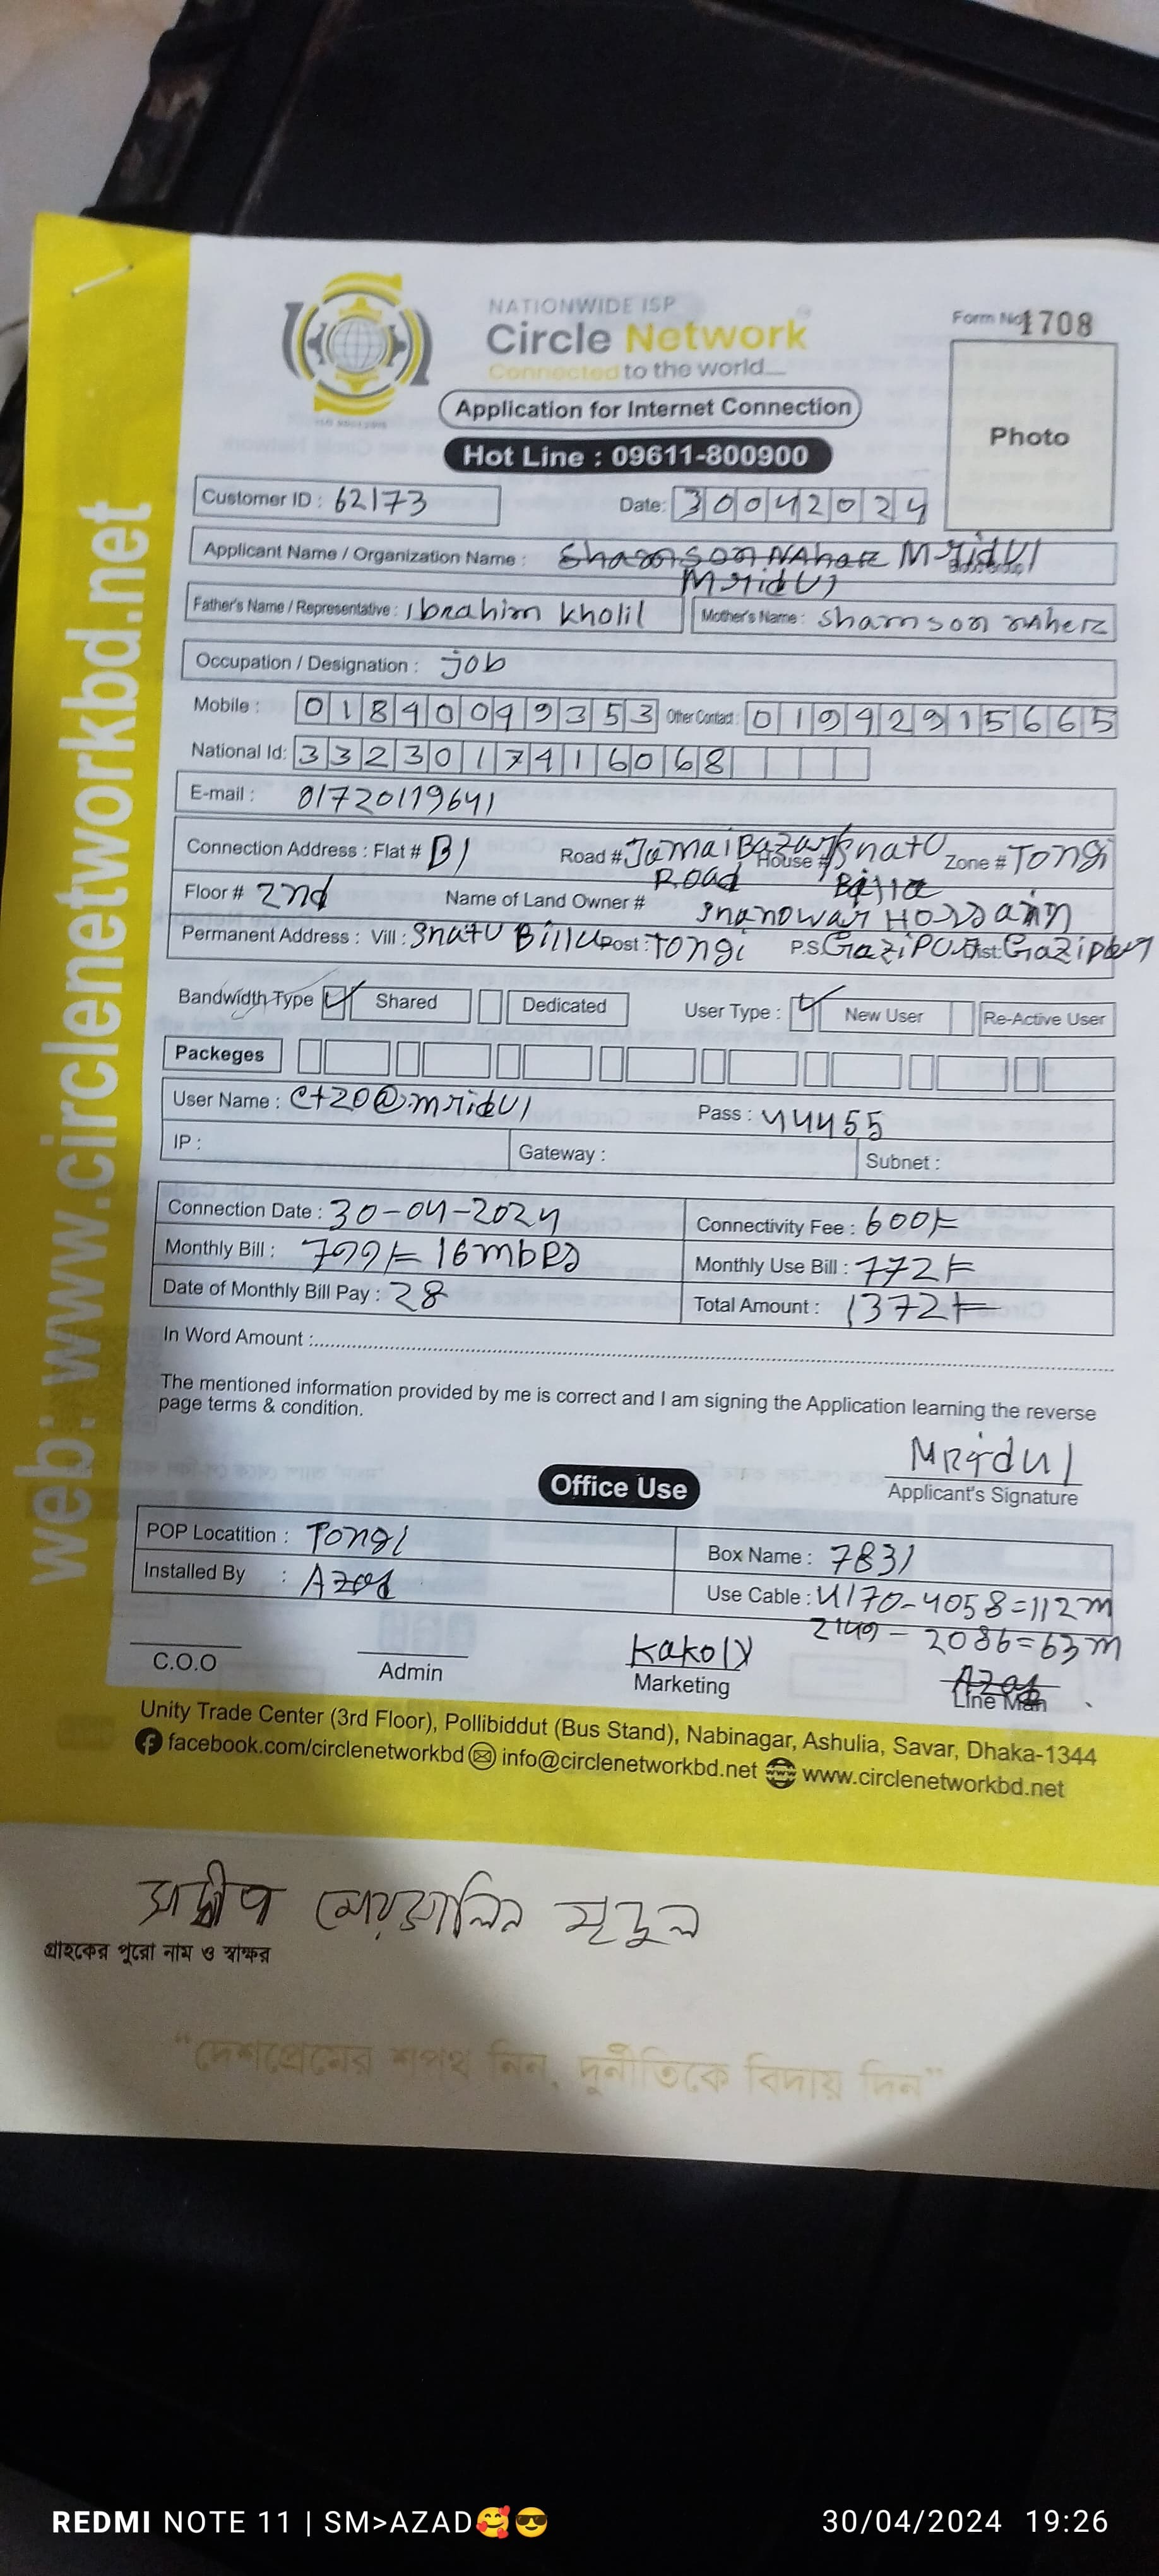 NATIONWIDE ISP
Circle Network
Connected to the world....
Form No 1708
Application for Internet Connection
Photo
Hot Line : 09611-800900
Customer ID : 62173 Date: 30042024
Applicant Name / Organization Name : Shamson NAhar Mridul
Mridul
Father's Name / Representative : Ibrahim Kholil Mother's Name : Shamson nAher
Occupation / Designation : job
Mobile : 01840049353 Other Contact : 01942915665
National Id: 3323017416068
E-mail : 01720119641
Connection Address : Flat # B1 Road # Jamai Bazar Road House # Zone # Tongi
Floor # 2nd Name of Land Owner #
Permanent Address : Vill : Post : Tongi P.S GaziPur Dist: Gazipur
Bandwidth Type Shared Dedicated User Type : New User Re-Active User
Packeges
User Name : ct20@mridul Pass : 44455
IP : Gateway : Subnet :
Connection Date : 30-04-2024 Connectivity Fee : 600/=
Monthly Bill : 799/= 16mbps Monthly Use Bill : 772/=
Date of Monthly Bill Pay : 28 Total Amount : 1372/=
In Word Amount :
The mentioned information provided by me is correct and I am signing the Application learning the reverse
page terms & condition.
Mridul
Applicant's Signature
Office Use
POP Locatition : Tongi Box Name : 7831
Installed By : Azad Use Cable : 4170-4058=112m
2149-2086=63m
C.O.O Admin Kakoly Marketing Azad Line Man
Unity Trade Center (3rd Floor), Pollibiddut (Bus Stand), Nabinagar, Ashulia, Savar, Dhaka-1344
facebook.com/circlenetworkbd info@circlenetworkbd.net www.circlenetworkbd.net
web: www.circlenetworkbd.net
মৃদুল
গ্রাহকের পুরো নাম ও স্বাক্ষর
“দেশপ্রেমের শপথ নিন, দুর্নীতিকে বিদায় দিন”
REDMI NOTE 11 | SM>AZAD🥰😎 30/04/2024 19:26